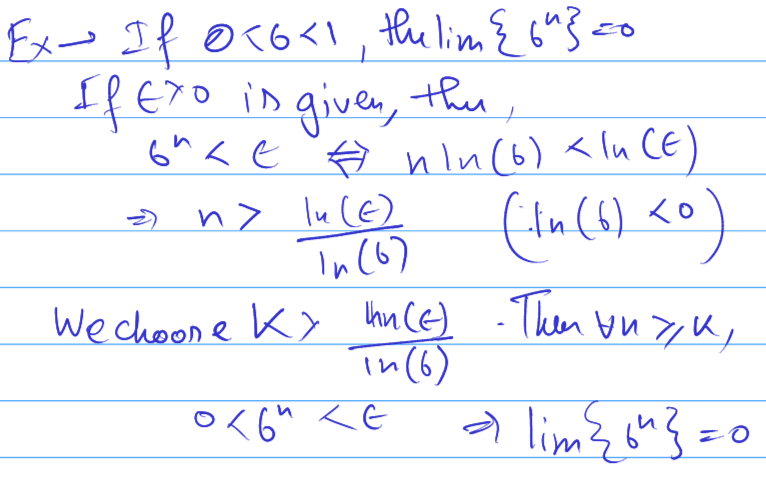 Ex → If 0<b<1, the lim{bⁿ}=0
If ϵ>0 is given, the,
bⁿ < ϵ ⇔ n ln(b) < ln(ϵ)
⇒ n > ln(ϵ)/ln(b) (∵ ln(b) <0)
We choose K > ln(ϵ)/ln(b) . Then ∀n ≥ K,
0<bⁿ <ϵ ⇒ lim{bⁿ}=0